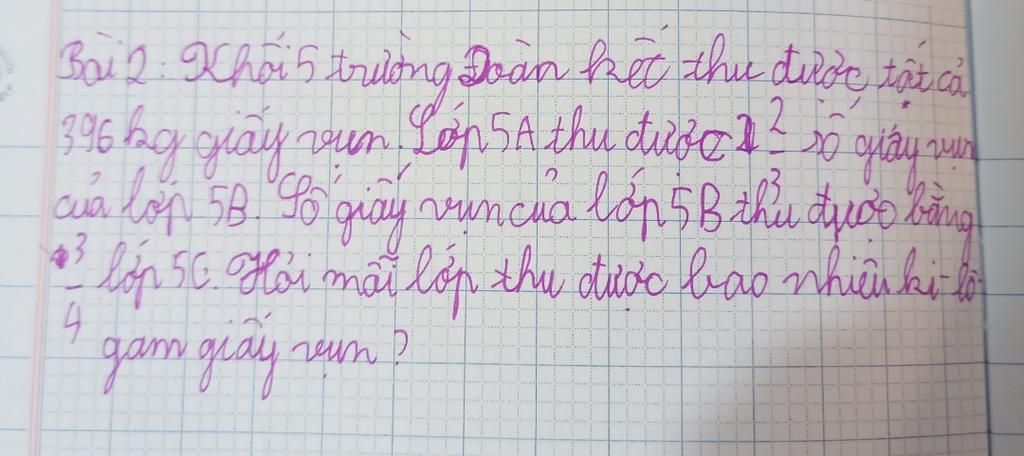 Bài 2: Khối 5 trường Đoàn kết thu được tất cả
396 kg giấy vụn. Lớp 5A thu được 2/3 số giấy vụn
của lớp 5B. Số giấy vụn của lớp 5B thu được bằng
3/4 lớp 5C. Hỏi mỗi lớp thu được bao nhiêu ki-lô-
gam giấy vụn?